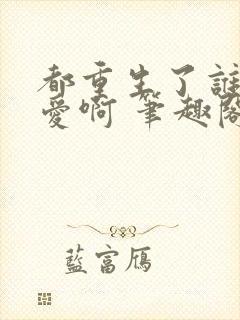 都重生了誰
愛啊 筆趣閣
藍富鴈